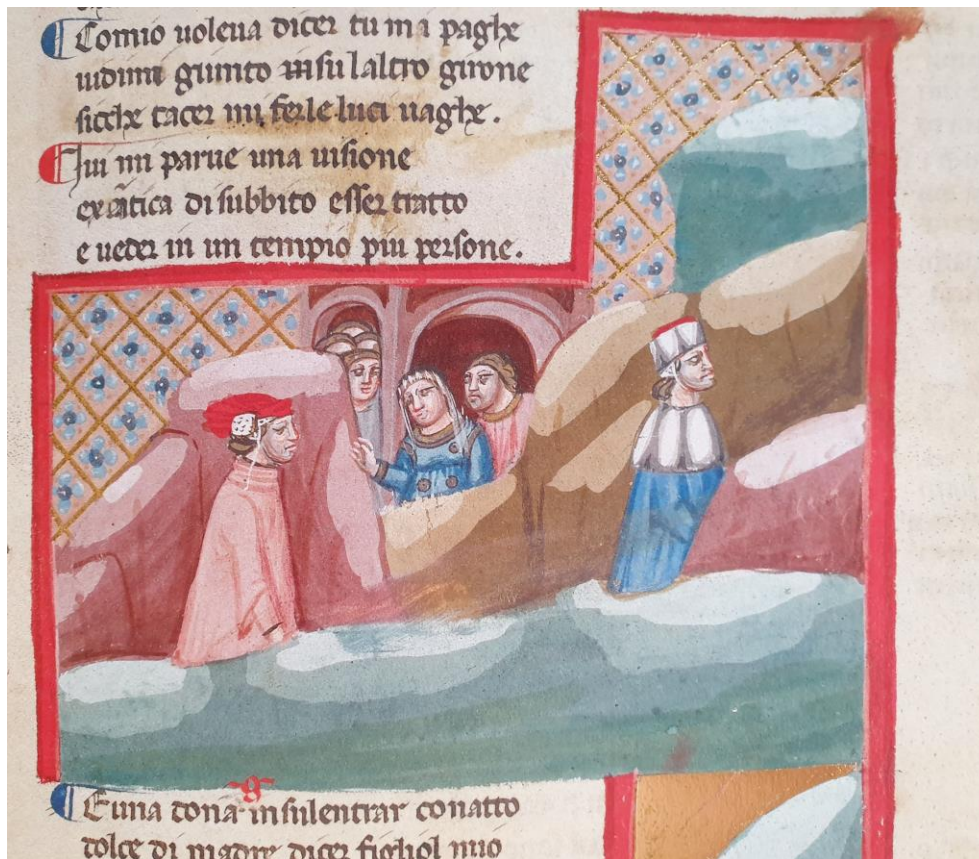 Comio uoleua dicer tu m a paghe
uidimi giunto insulaltro girone
sicche tacer mi ferle luci uaghe.
Iui mi parue una uisione
exãtica di subbito esser tratto
e ueder in un tempio piu persone.
E una dona insulentrar conatto
dolce di madre dicer figliol mio